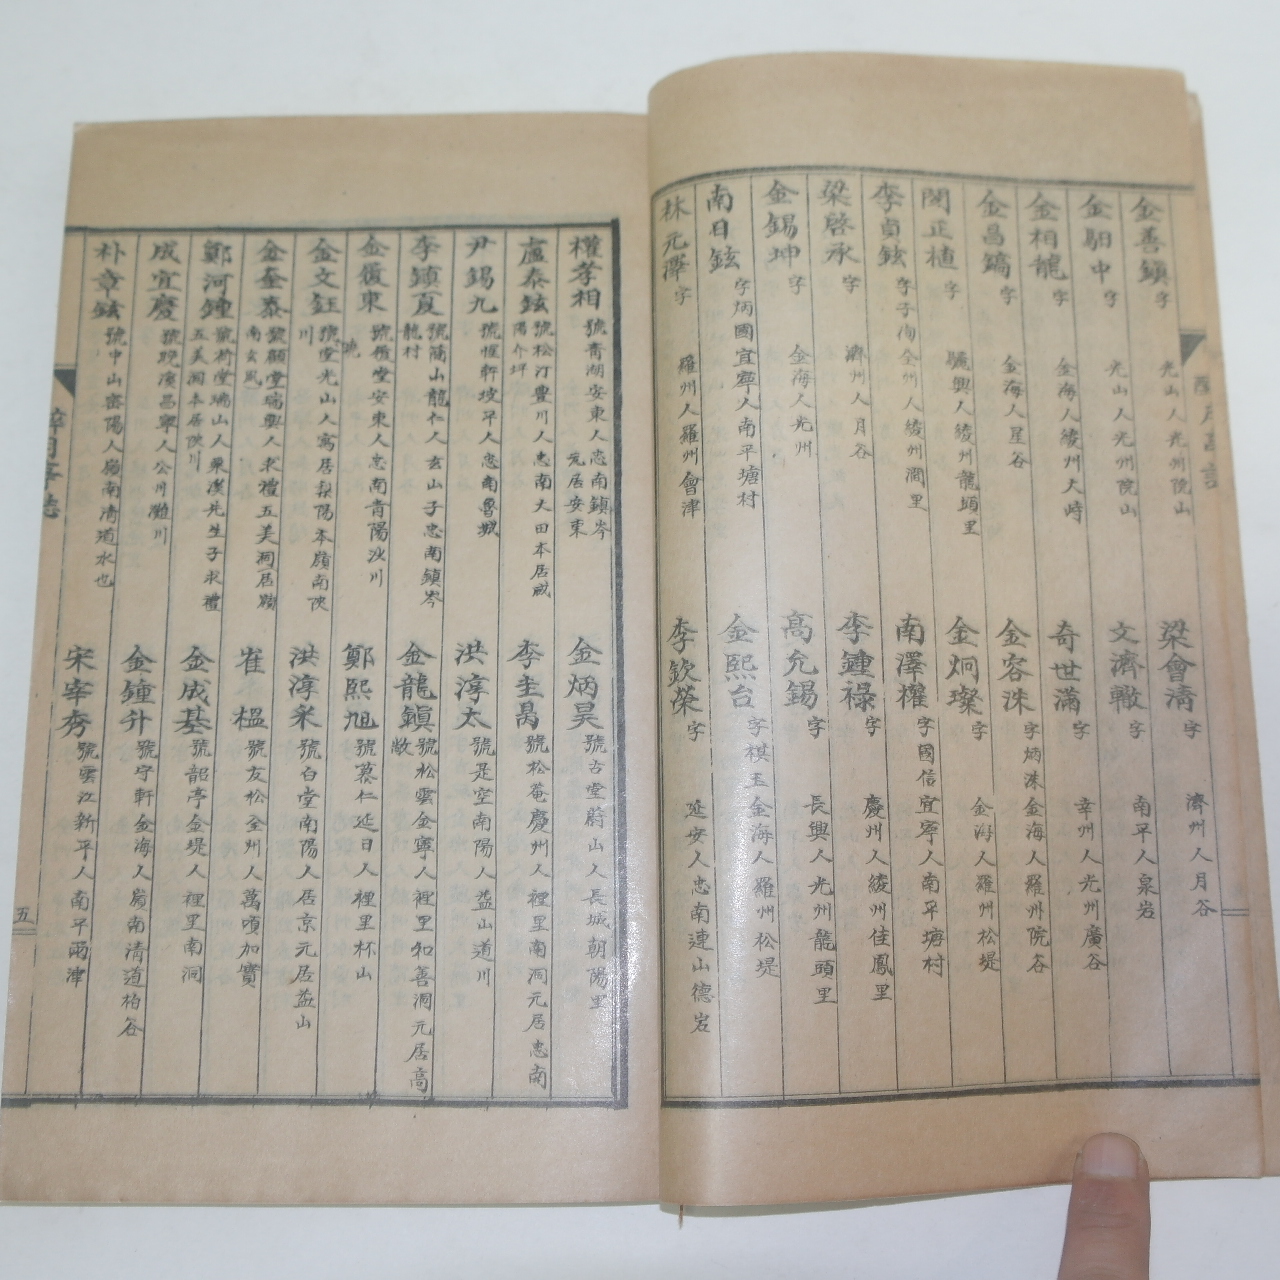 金善鎭 字 光山人光州院山
梁會淸 字 濟州人月谷
金 中 字 光山人光州院山
文濟轍 字 南平人泉岩
金相龍 字 金海人綾州大峙
奇世滿 字 幸州人光州廣谷
金昌鎬 字 金海人星谷
金容洙 字炳洙金海人羅州院谷
閔正植 字 驪興人綾州龍頭里
金炯璨 字 金海人羅州松堤
李貞鉉 字子洵全州人綾州澗里
南澤權 字國信宜寧人南平塘村
梁啓承 字 濟州人月谷
李鍾祿 字 慶州人綾州佳鳳里
金錫坤 字 金海人光州
高允錫 字 長興人光州龍頭里
南日鉉 字炳國宜寧人南平塘村
金熙台 字棋玉金海人羅州松堤
林元澤 字 羅州人羅州會津
李欽榮 字 延安人忠南連山德岩
權孝相 號靑湖安東人忠南鎭岑元居安東
金炳昊 號古堂蔚山人長城朝陽里
盧泰鉉 號松汀豊川人忠南大田本居咸陽介坪
李圭昺 號松菴慶州人裡里南洞元居忠南
尹錫九 號惺軒坡平人忠南魯城
洪淳太 號是空南陽人益山道川
李鎭夏 號蘭山龍仁人玄山子忠南鎭岑龍村
金龍鎭 號松雲金寧人裡里和善洞元居高敞
金復東 號 堂安東人忠南靑陽汝川
鄭熙旭 號慕仁延日人裡里杯山
金文鈺 號 堂光山人寓居梨陽本嶺南陜川
洪淳采 號白堂南陽人居京元居益山
金奎泰 號顧堂瑞興人求禮五美洞居嶺南玄風
崔榲 號友松全州人萬頃加寶
鄭河鍾 號荷堂瑞山人栗溪先生子求禮五美洞本居陜川
金成基 號韶亭金堤人裡里南洞
成宜慶 號晚溪昌寧人公州灘川
金鍾升 號守軒金海人嶺南淸道柏谷
朴章鉉 號中山密陽人嶺南淸道水也
宋宰秀 號雲江新平人南平雨津
五